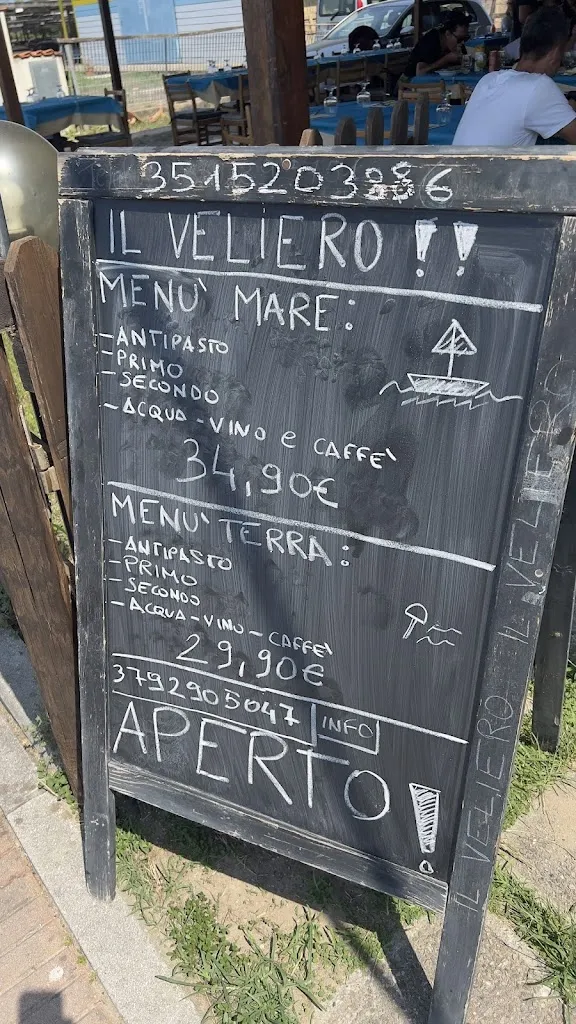 3515203886
IL VELIERO !!
MENU' MARE:
-ANTIPASTO
-PRIMO
-SECONDO
-ACQUA-VINO e CAFFE'
34,90€
MENU' TERRA:
-ANTIPASTO
-PRIMO
-SECONDO
-ACQUA-VINO-CAFFE'
29,90€
3792905047 INFO
APERTO!
IL VELIERO IL VELIERO